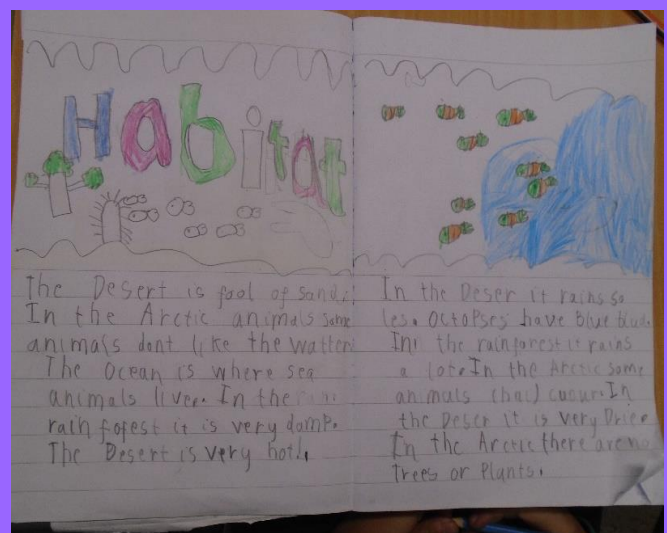 Habitat
The Desert is fool of sand.
In the Arctic animals some
animals dont like the watter
The Ocean is where sea
animals live. In the
rain forest it is very damp.
The Desert is very hot.
In the Deser it rains so
les. Octopses have blue blud.
In the rainforest it rains
a lot. In the Arctic some
animals
the Deser it is very Drie.
In the Arctic there are no
Trees or Plants.